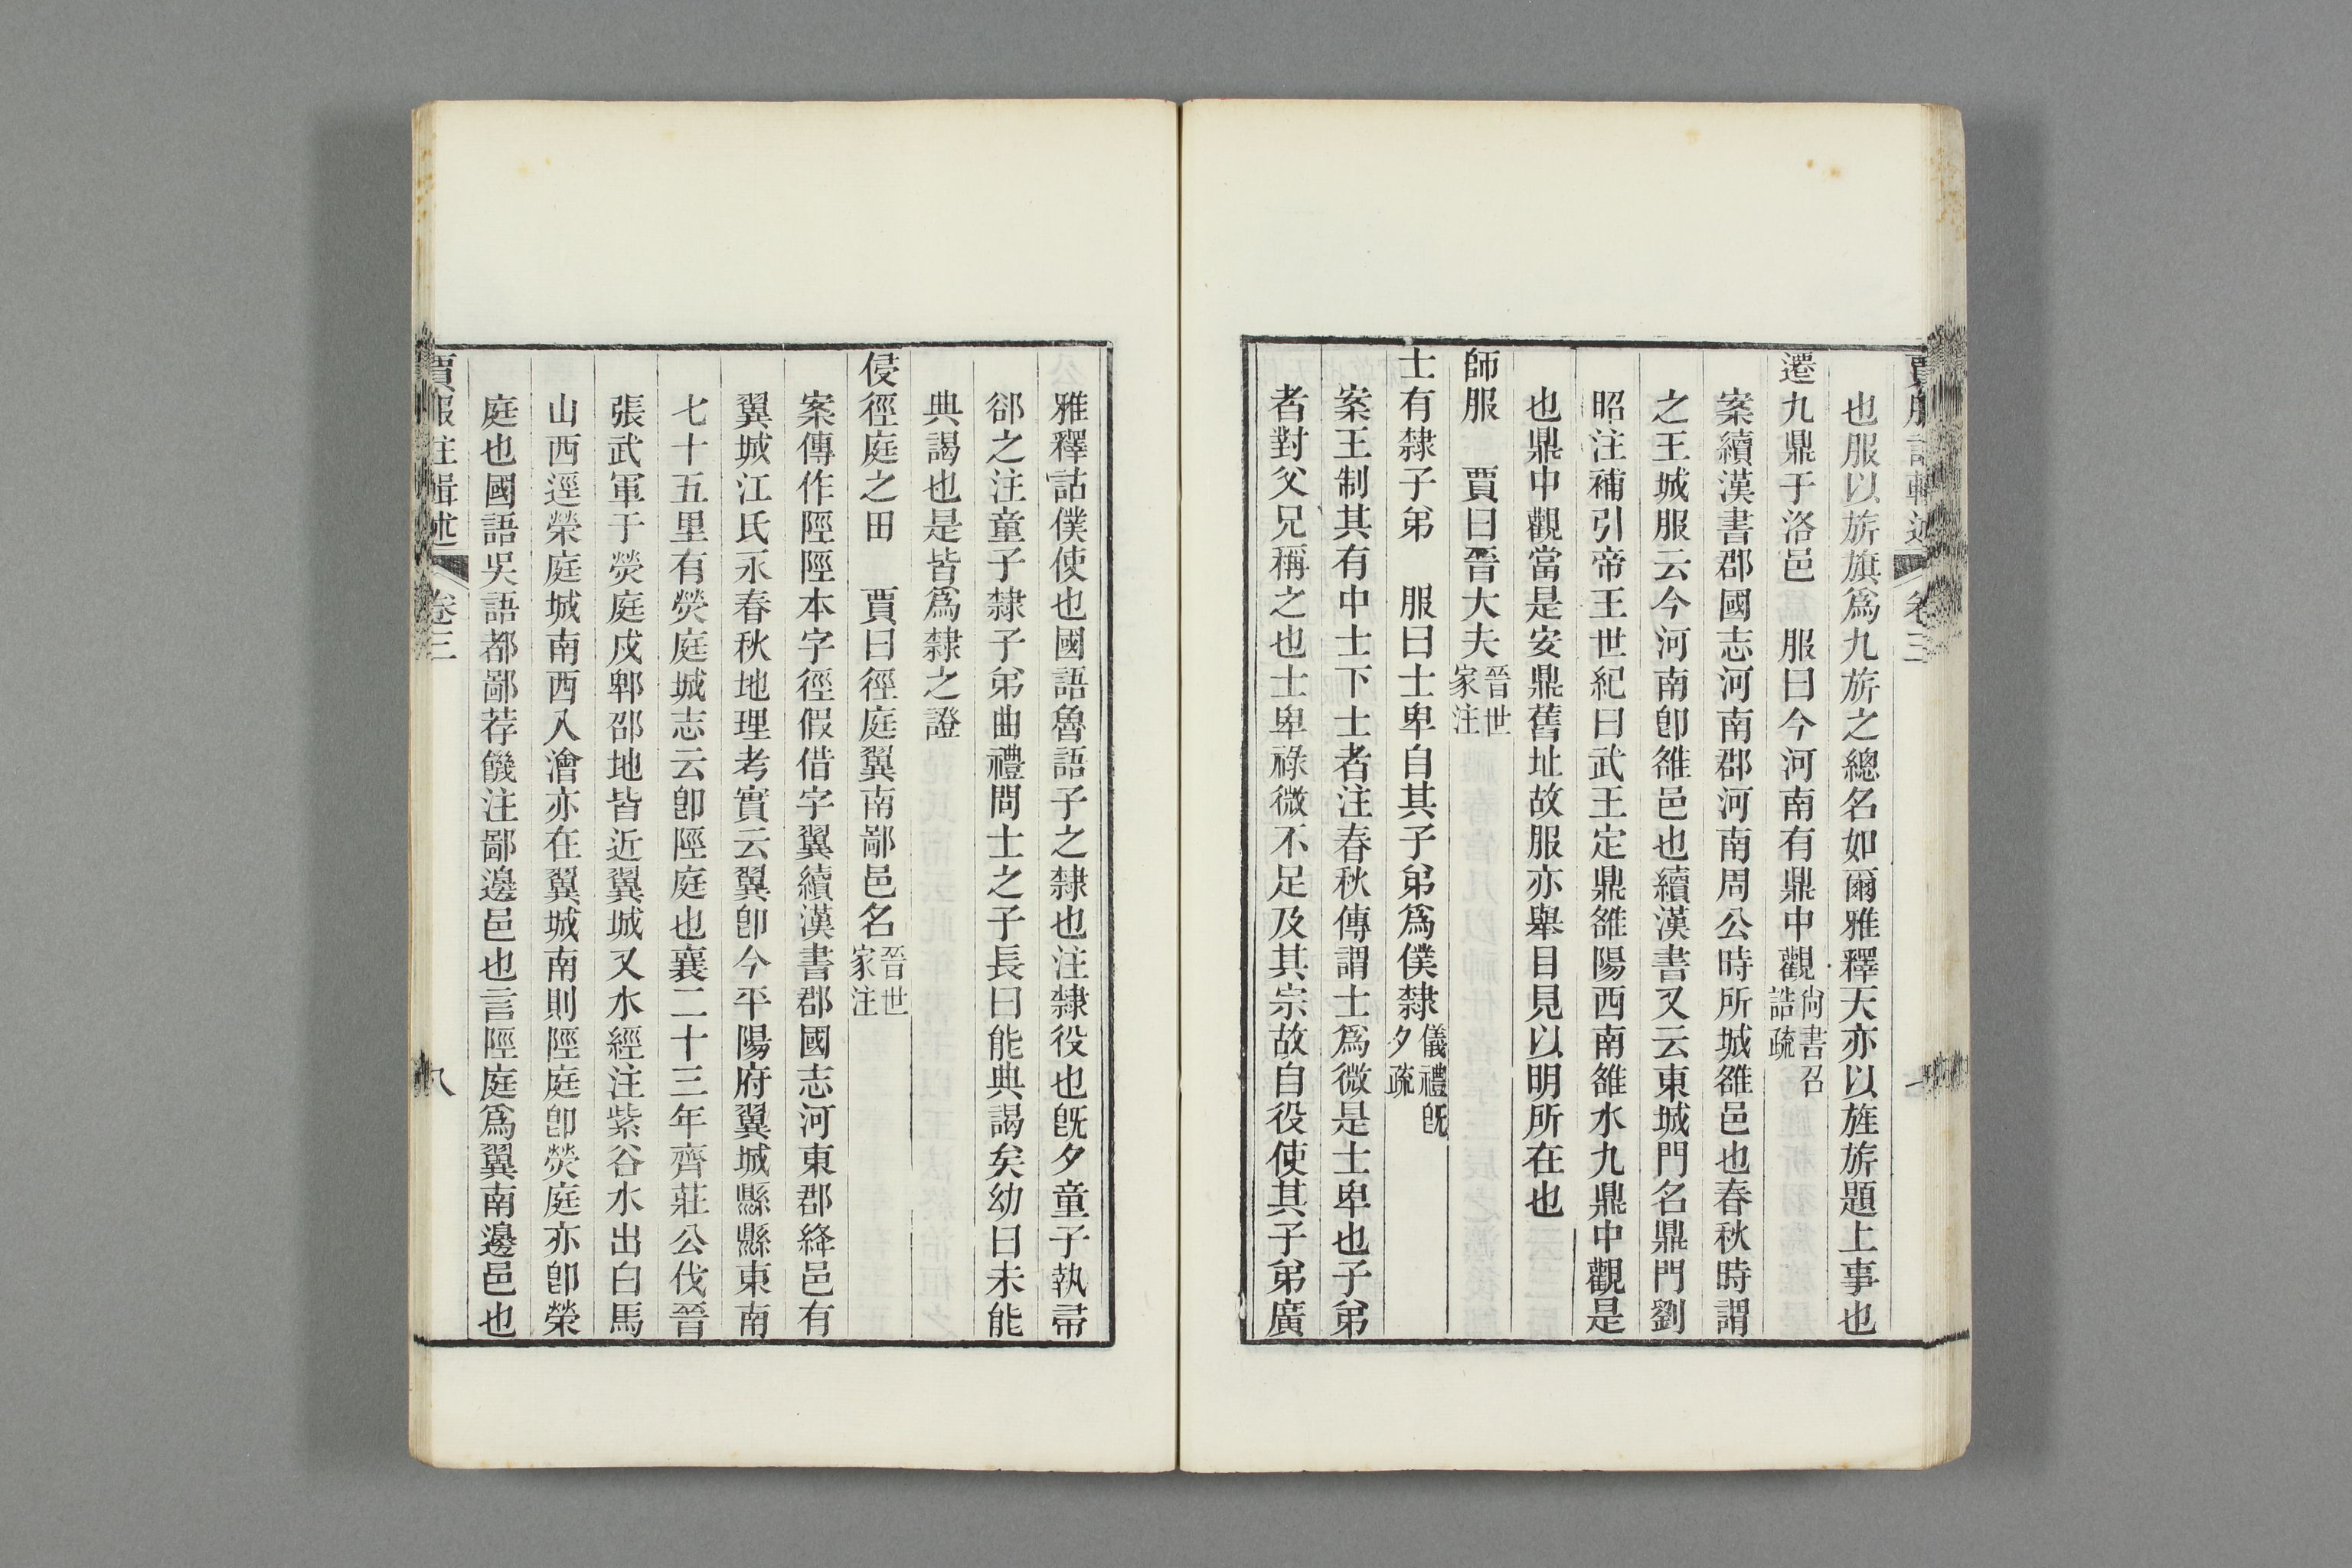 賈服注輯述 卷三
也服以旂旗爲九旂之總名如爾雅釋天亦以旌旂題上事也
遷九鼎于洛邑 服曰今河南有鼎中觀尙書召誥疏
案續漢書郡國志河南郡河南周公時所城雒邑也春秋時謂
之王城服云今河南卽雒邑也續漢書又云東城門名鼎門劉
昭注補引帝王世紀曰武王定鼎雒陽西南雒水九鼎中觀是
也鼎中觀當是安鼎舊址故服亦舉目見以明所在也
師服 賈曰晉大夫晉世家注
士有隸子弟 服曰士卑自其子弟爲僕隸儀禮旣夕疏
案王制其有中士下士者注春秋傳謂士爲微是士卑也子弟
者對父兄稱之也士卑祿微不足及其宗故自役使其子弟廣
雅釋詁僕使也國語魯語子之隸也注隸役也旣夕童子執帚
郤之注童子隸子弟曲禮問士之子長曰能典謁矣幼曰未能
典謁也是皆爲隸之證
侵徑庭之田 賈曰徑庭翼南鄙邑名晉世家注
案傳作陘陘本字徑假借字翼續漢書郡國志河東郡絳邑有
翼城江氏永春秋地理考實云翼卽今平陽府翼城縣縣東南
七十五里有熒庭城志云卽陘庭也襄二十三年齊莊公伐晉
張武軍于熒庭戍郫邵地皆近翼城又水經注紫谷水出白馬
山西逕榮庭城南西入澮亦在翼城南則陘庭卽熒庭亦卽榮
庭也國語吳語都鄙荐饑注鄙邊邑也言陘庭爲翼南邊邑也
賈服注輯述 卷三 八